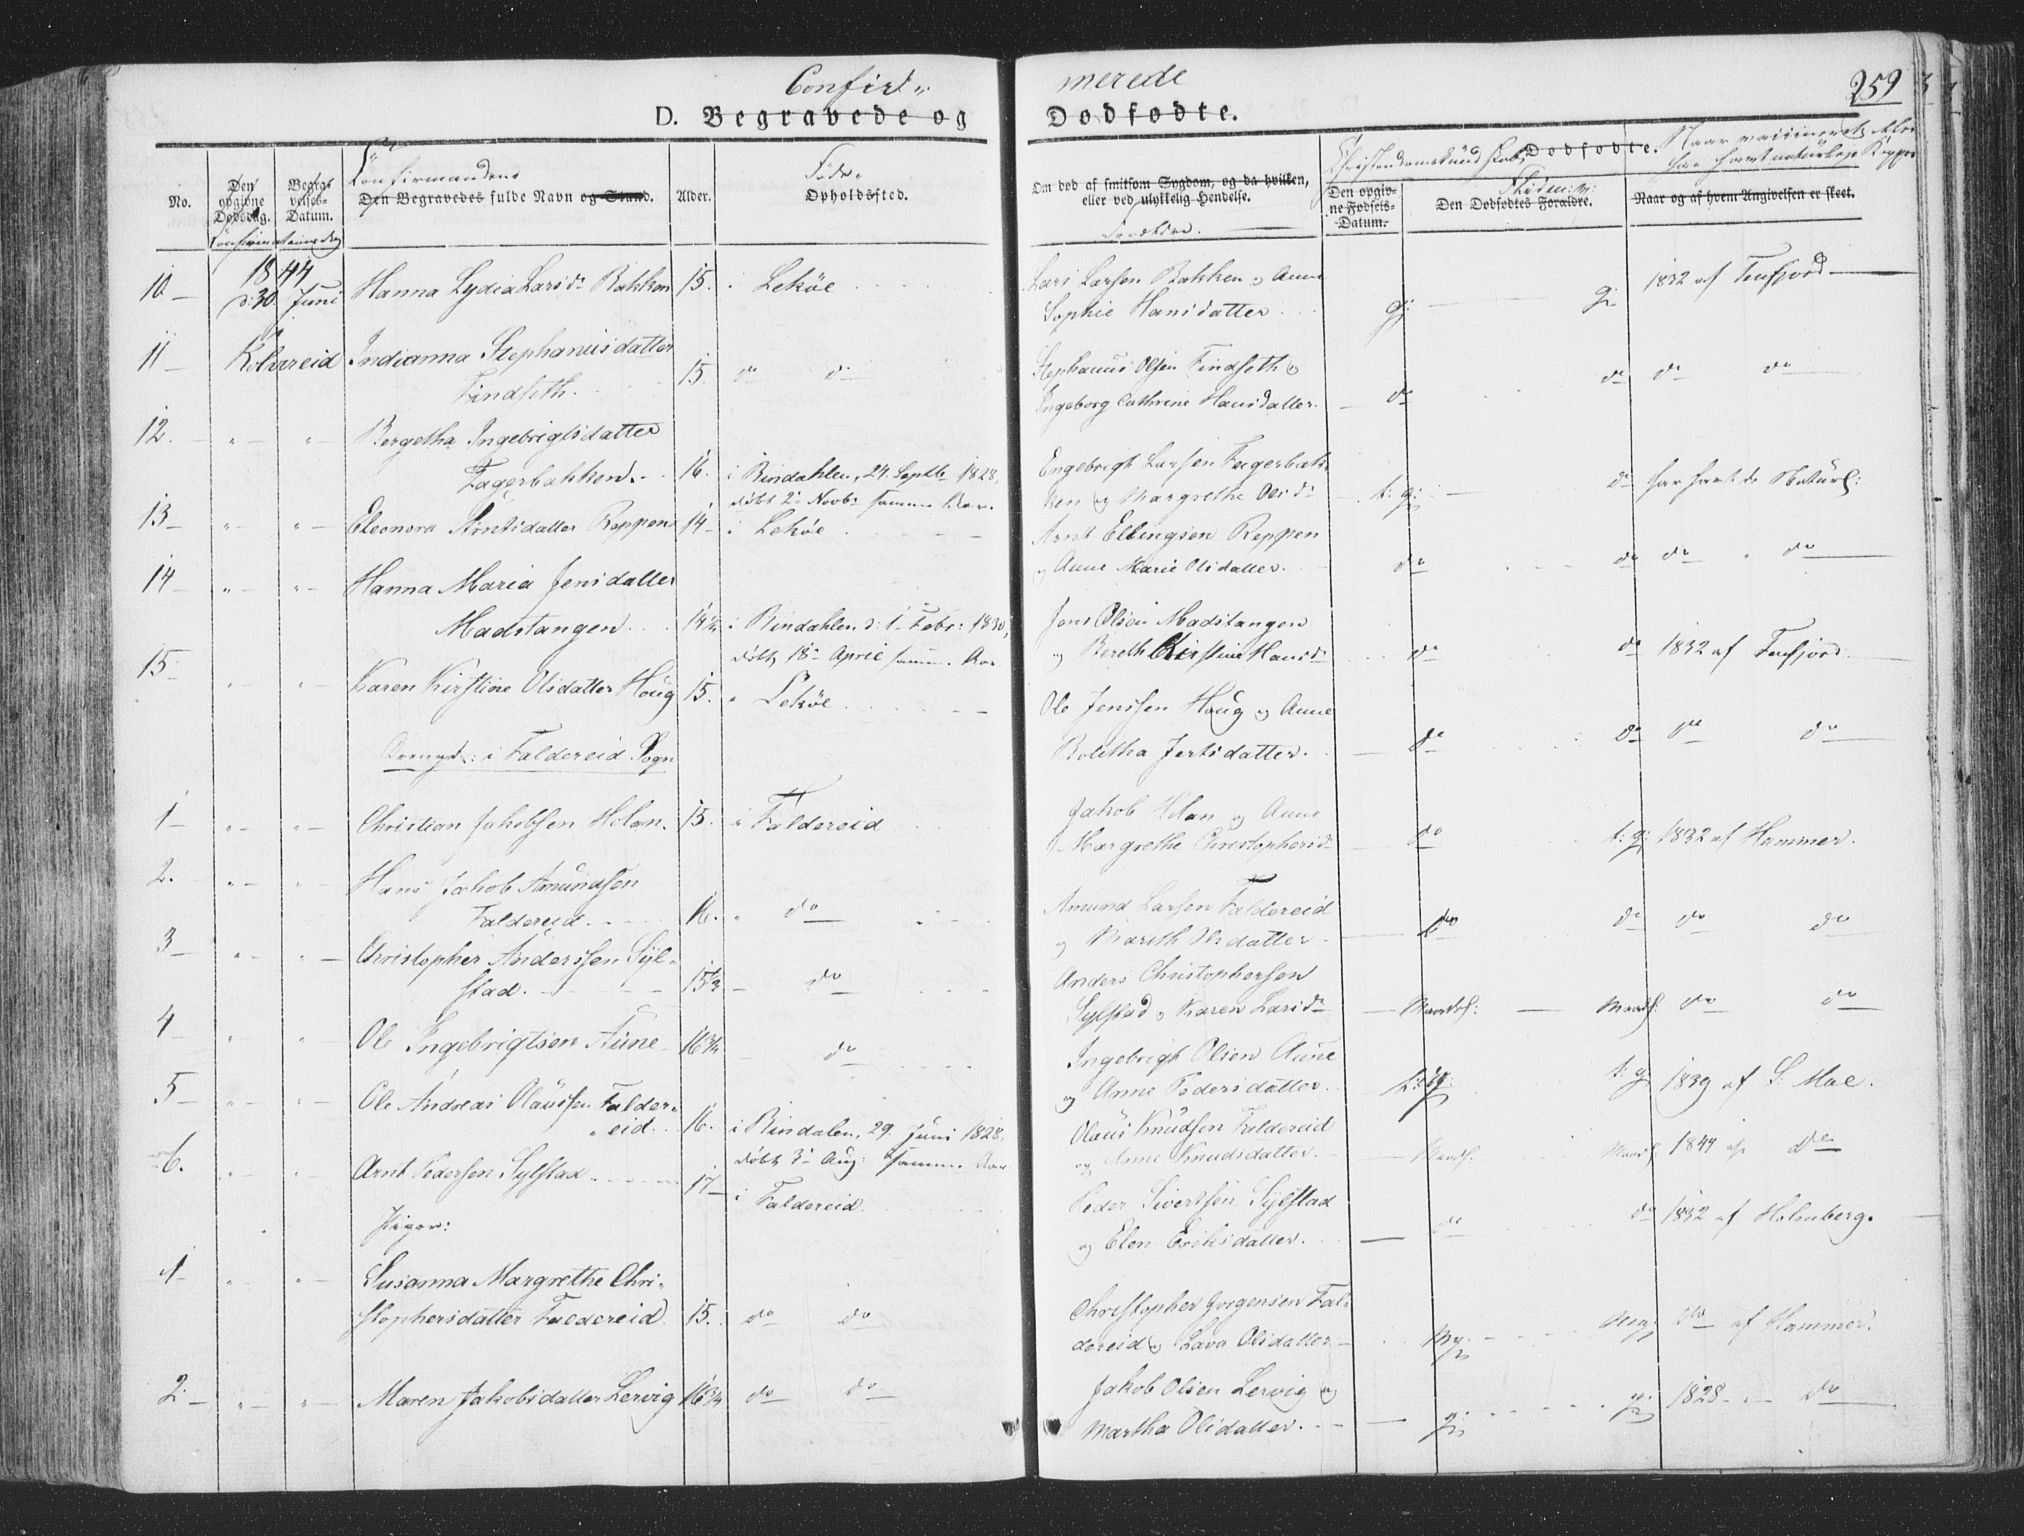 Confir- merede
259
D. Begravede og Dødfødte.
No.
Den opgivne Dødsdag.
Begravelses-Datum.
Confirmandens
Den Begravedes fulde Navn og Stand.
Alder.
Føde-
Opholdssted.
Om død af smitsom Sygdom, og da hvilken, eller ved ulykkelig Hendelse.
Forældre.
Christendomskundskab.
Dødfødte.
Den opgivne Fødsels-Datum.
Den Dødfødtes Forældre.
Naar og af hvem Angivelsen er skeet.
10 1844 d: 30 Juni Hanna Lydia Larsdr Bakken 15. i Lekøe Lars Larsen Bakken og Anne
Sophie Hansdatter g: g: 1832 af Tenfjord
11 Kolvereid Indianna Stephanusdatter
Findseth. 15. do do Stephanus Olsen Findseth og
Ingeborg Cathrine Hansdatter. do do do do
12. Bergetha Ingebrigtsdatter
Fagerbakken. 16. i Bindahlen, 24 Septb 1828, Engebrigt Larsen Fagerbak-
døbt 2 Novbr samme Aar. ken og Margrethe Olsdr t: g: do har havt de Natürl:
13 Eleonora Arntsdatter Reppen 14 i Lekøe Arnt Ellingsen Reppen
og Anne Marie Olsdatter. do do do do
14 Hanna Maria Jensdatter
Madstangen 14½ i Bindahlen d: 1 Febr: 1830, Jens Olsen Madstangen
døbt 18 April samme Aar og Bereth Kirstine Hansdr do do 1832 af Tenfjord
15 Karen Kirstine Olsdatter Houg 15. " Lekøe Ole Jenssen Houg og Anne
Bolitha Jertsdatter. do do do do
i Foldereid Sogn
1 Christian Jakobsen Holan. 15. i Foldereid Jakob Holan og Anne
Margrethe Christophersdr do t: g: 1832 af Hammer.
2. Hans Jakob Amundsen
Foldereid. 16. " do Amund Larsen Foldereid
og Marith Olsdatter do do do do
3 Christopher Anderssen Syl-
stad. 15½ do Anders Christophersen
Sylstad og Karen Larsdr Maadel: Maadl: do do
4 Ole Ingebrigtsen Aune 16¾ do Ingebrigt Olsen Aune
og Anne Pedersdatter. t: g: t: g 1839 af S: Moe.
5 Ole Andreas Olaussen Folder-
eid. 16. i Bindalen, 29 Juni 1828, Olaus Knudsen Foldereid
døbt 3 Aug: samme Aar og Anne Knudsdatter. Maadl: Maadl 1844 af do
6. Arnt Pedersen Sylstad 17 i Foldereid Peder Sivertsen Sylstad
og Elen Eriksdatter. do do 1832 af Holmberg.
Piger:
1 Susanna Margrethe Chri-
stophersdatter Foldereid 15. do do Christopher Jorgensen Fol-
dereid og Lava Olsdatter Mg: Mg: do af Hammer.
2. Maren Jakobsdatter Lervig 16¾ do do Jakob Olsen Lervig og
Martha Olsdatter. g: g: 1828 " do